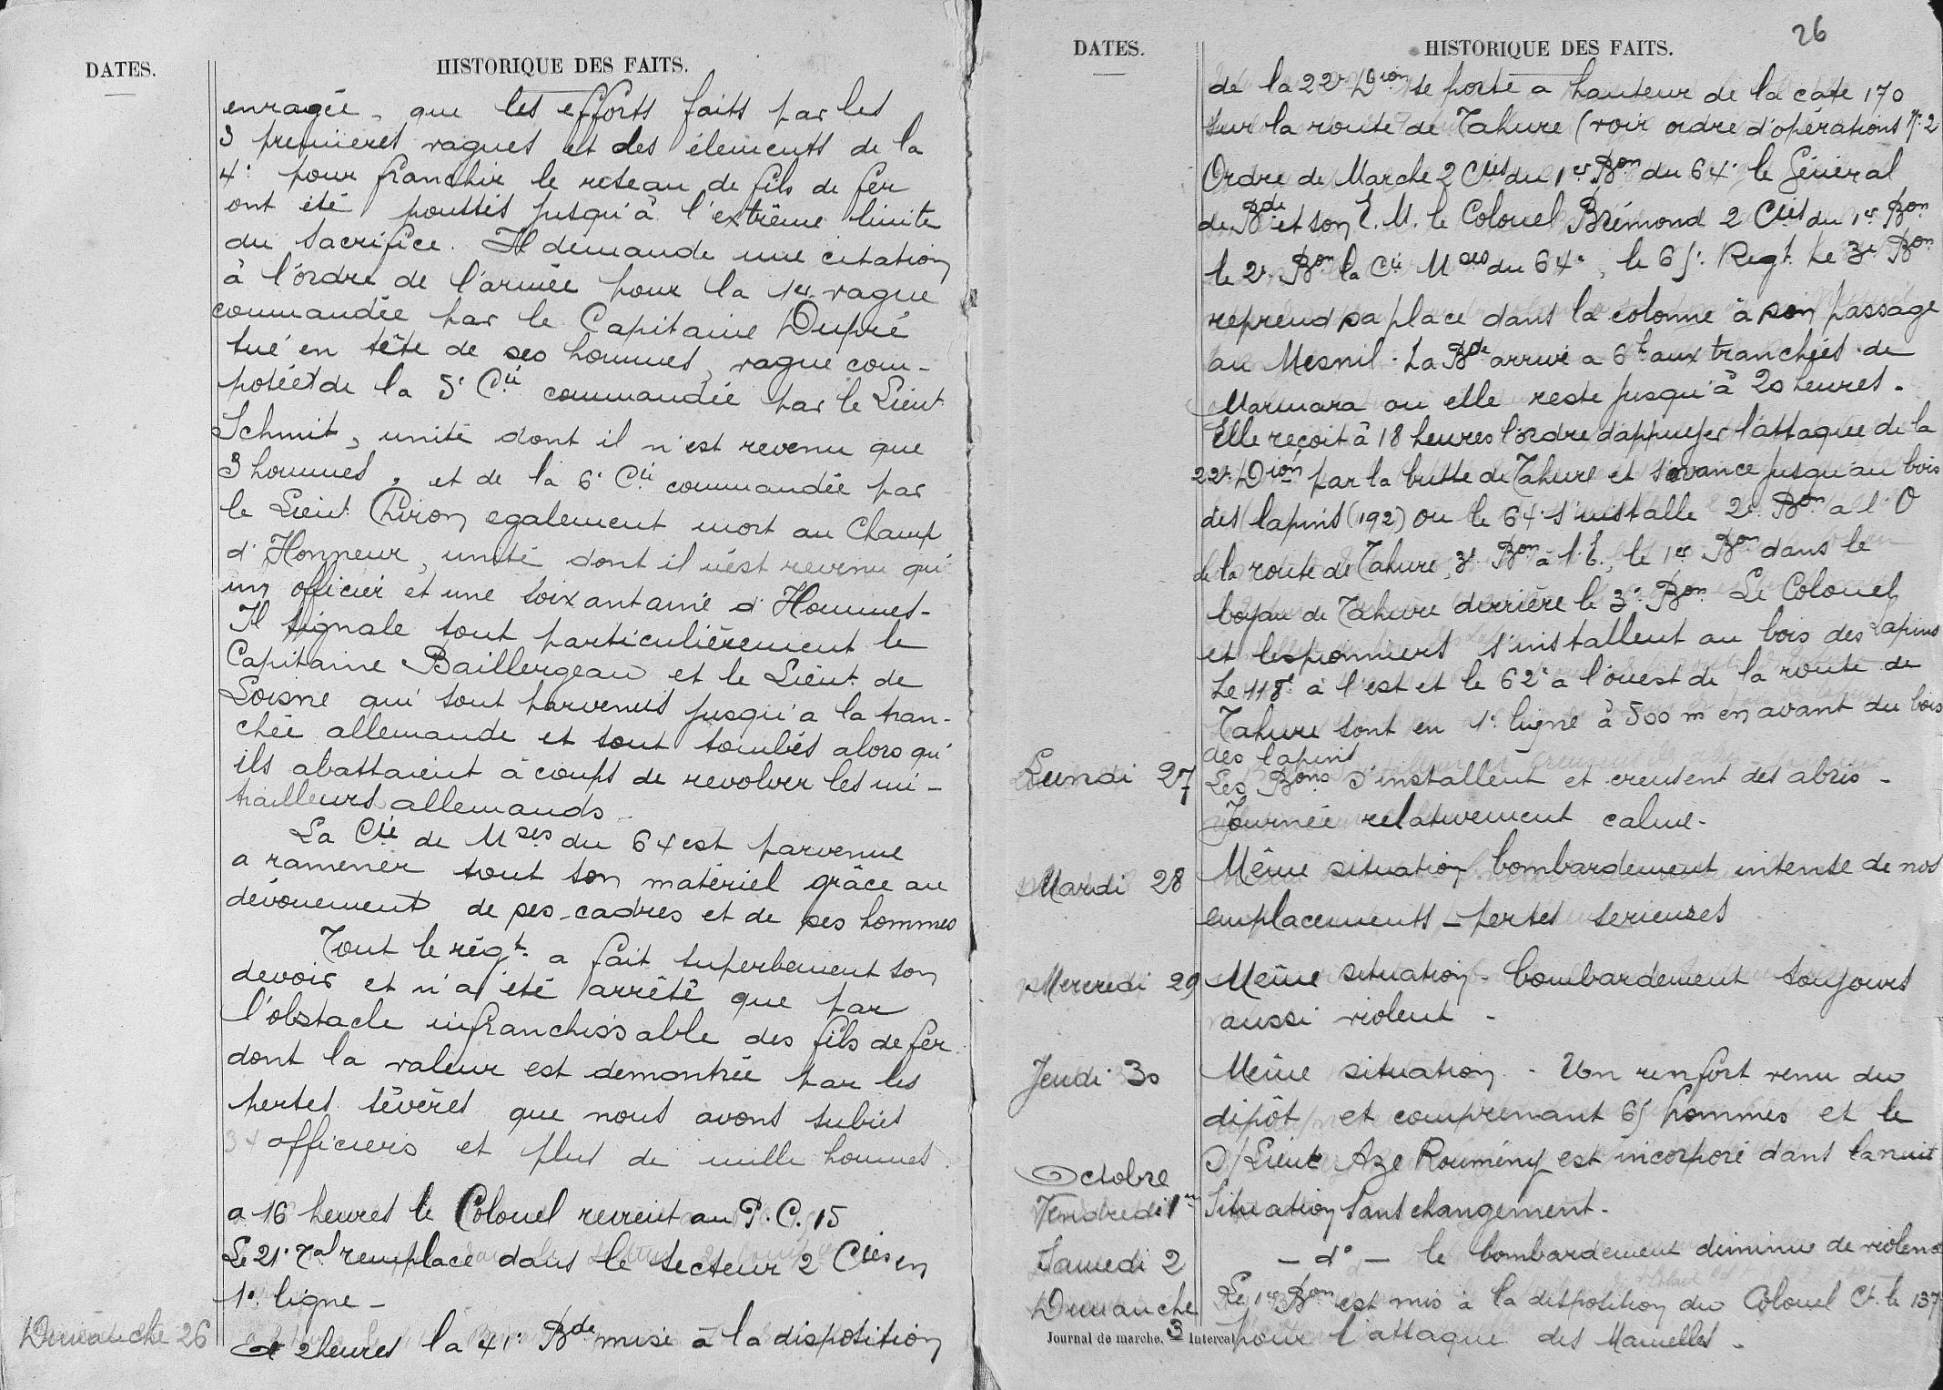 DATES.
HISTORIQUE DES FAITS.
enragée, que les efforts faits par les
3 premières vagues et des élements de la
4e pour franchir le réseau de fils de fer
ont été poussés jusqu'à l'extrême limite
du sacrifice. Il demande une citation
à l'ordre de l'armée pour la 1ère vague
commandée par le Capitaine Dupré
tué en tête de ses hommes, vague com-
posée de la 5e Cie commandée par le Lieut
Schmit, unité dont il n'est revenu que
3 hommes, et de la 6e Cie commandée par
le Lieut. Chiron egalement mort au Champ
d'Honneur, unité dont il n'est revenu qu'
un officier et une soixantaine d'Hommes.
Il signale tout particulièrement le
Capitaine Baillergeau et le Lieut. de
Loisne qui sont parvenus jusqu'a la tran-
chée allemande et sont tombés alors qu'
ils abattaient à coups de revolver les mi-
trailleurs allemands.
La Cie de Mses du 64 est parvenue
a ramener tout son matériel grâce au
dévouement de ses cadres et de ses hommes
Tout le régt. a fait superbement son
devoir et n'a été arrêté que par
l'obstacle infranchissable des fils de fer
dont la valeur est démontrée par les
pertes sévères que nous avons subies
34 officiers et plus de mille hommes.
a 16 heures le Colonel revient au P.C. 15
Le 21e Xal remplace dans le secteur 2 Cies en
1e ligne -
Dimanche 26
a 2 heures la 41e Bde mise à la disposition
26
DATES.
HISTORIQUE DES FAITS.
de la 22e Dion se porte a hauteur de la cote 170
sur la route de Tahure (voir ordre d'opérations No 2
Ordre de Marche 2 Cies du 1er Bon du 64e le Général
de Bde et son E.M. le Colonel Brémond 2 Cies du 1er Bon
le 2e Bon la Cie Mses du 64e, le 65e Regt. Le 3e Bon
reprend sa place dans la colonne à son passage
au Mesnil. La Bde arrive a 6h aux tranchées de
Marmara ou elle reste jusqu'à 20 heures.
Elle reçoit à 18 heures l'ordre d'appuyer l'attaque de la
22e Dion par la butte de Tahure et s'avance jusqu'au bois
des lapins (192) ou le 64e s'installe 2e Bon a l'O
de la route de Tahure, 3e Bon à l'E., le 1er Bon dans le
boyau de Tahure derrière le 3e Bon. Le Colonel
et les pionniers s'installent au bois des Lapins
Le 118e à l'est et le 62e a l'ouest de la route de
Tahure sont en 1e ligne à 500 m en avant du bois
des lapins
Lundi 27
Les Bons s'installent et creusent des abris -
Journée relativement calme.
Mardi 28
Même situation, bombardement intense de nos
emplacements - pertes serieuses
Mercredi 29
Même situation. bombardement toujours
aussi violent -
Jeudi 30
Même situation. - Un renfort venu du
dépôt et comprenant 65 hommes et le
S/Lieut Aze Roumény est incorporé dans la nuit
Octobre
Vendredi 1er
Situation sans changement.
Samedi 2
- do - le bombardement diminue de violence
Dimanche
3
Le 1er Bon est mis à la disposition du Colonel Ct. le 137
pour l'attaque des Mamelles.
Journal de marche. Intercal